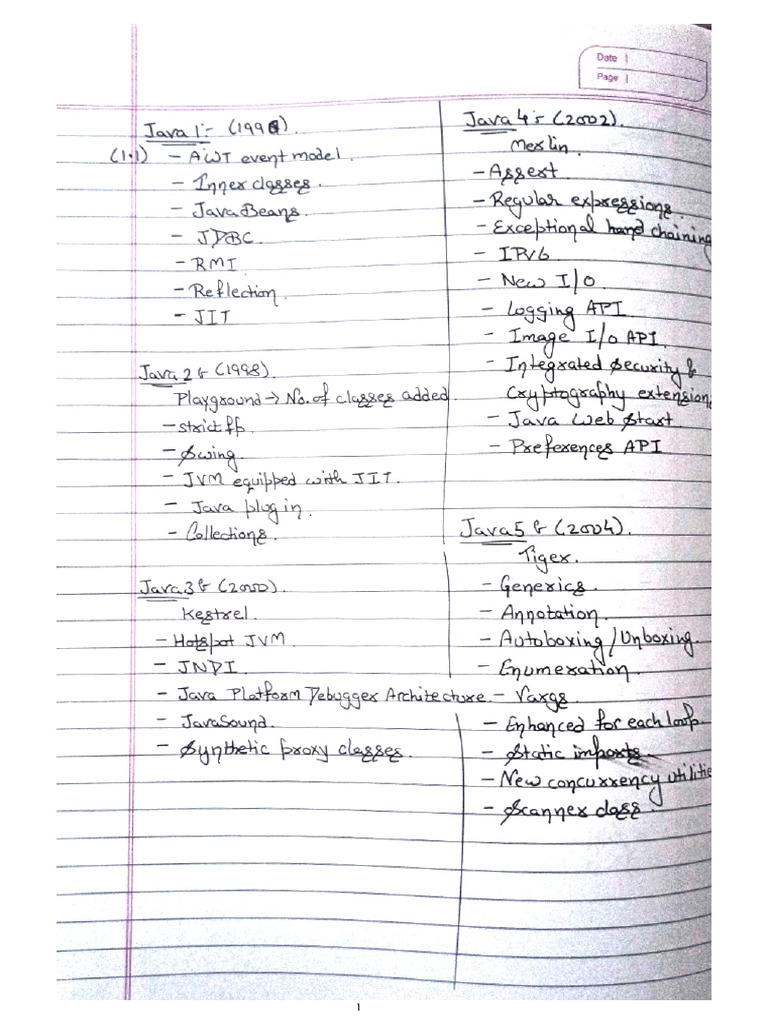 Date
Page
Java 1:- (1996)
(1.1) - AWT event model.
- Inner classes.
- JavaBeans.
- JDBC.
- RMI
- Reflection.
- JIT
Java 2:- (1998)
Playground → No. of classes added.
- strictfp.
- Swing.
- JVM equipped with JIT.
- Java plug in.
- Collections.
Java 3:- (2000).
Kestrel.
- Hotspot JVM.
- JNDI.
- Java Platform Debugger Architecture.
- JavaSound.
- Synthetic proxy classes.
Java 4:- (2002).
Merlin.
- Assert.
- Regular expressions.
- Exceptional hand chaining
- IPV6
- New I/O.
- Logging API.
- Image I/O API.
- Integrated Security &
Cryptography extension
- Java Web Start.
- Preferences API
Java 5:- (2004).
Tiger.
- Generics.
- Annotation.
- Autoboxing/Unboxing.
- Enumeration.
- Vargs.
- Enhanced for each loop.
- Static imports.
- New concurrency utilitie
- Scanner class.
1